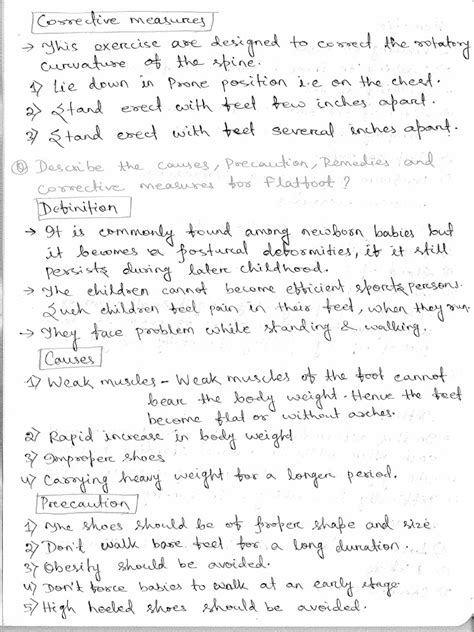 Corrective measures
→ This exercise are designed to correct the rotatory
curvature of the spine.
1) Lie down in Prone position i.e on the chest.
2) Stand erect with feet few inches apart.
3) Stand erect with feet several inches apart.
Describe the causes, Precaution, Remedies and
corrective measures for Flatfoot?
Definition
→ It is commonly found among newborn babies but
it becomes a postural deformities, if it still
persists during later childhood.
→ The children cannot become efficient sports persons.
Such children feel pain in their feet, when they run.
→ They face problem while standing & walking.
Causes
1) Weak muscles - Weak muscles of the foot cannot
bear the body weight. Hence the feet
become flat or without arches.
2) Rapid increase in body weight
3) Improper shoes
4) Carrying heavy weight for a longer period.
Precaution
1) The shoes should be of proper shape and size.
2) Don't walk bare feet for a long duration.
3) Obesity should be avoided.
4) Don't force babies to walk at an early stage.
5) High heeled shoes should be avoided.